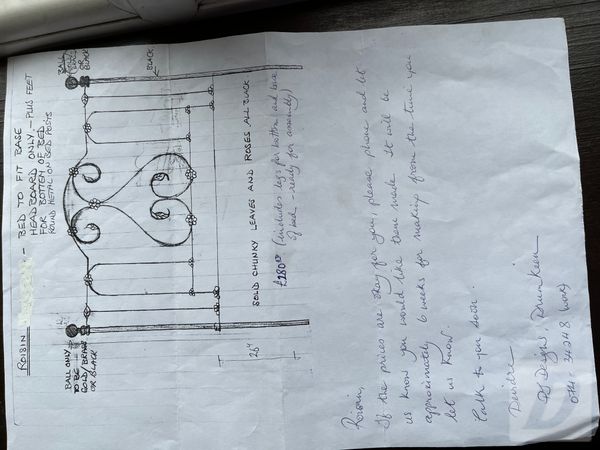 ROISIN
- BED TO FIT BASE
HEADBOARD ONLY - PLUS FEET
FOR BOTTEN OF BED
ROUND METAL ON BED POSTS
BALL
OR
BLACK
BLACK
BALL ONLY
TO BE
GOLD/BRASS
OR BLACK
26"
SOLID CHUNKY LEAVES AND ROSES ALL BLACK
£280.00 (includes legs for bottom and base
of bed - ready for assembly)
Roisin,
If the prices are okay for you, please phone and let
us know you would like them made. It will be
approximately 6 weeks for making from the time you
let us know.
Talk to you soon.
Deirdre
PJ Deighs, Drumkeen
074 - 34248 (work)